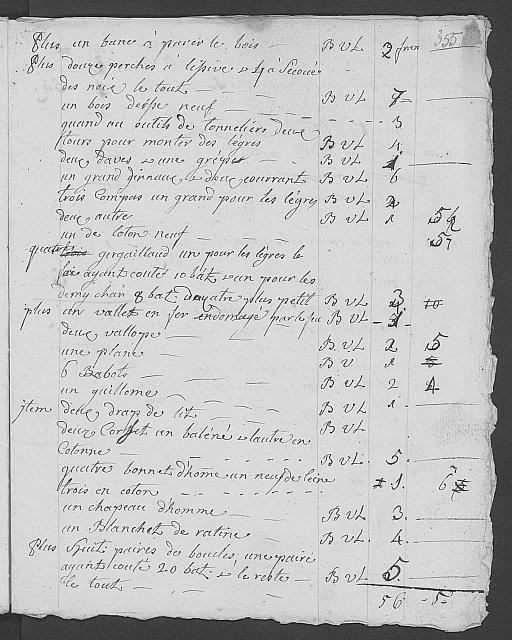 355
plus un banc à parer le bois — B V L 2 fran
plus douze perches a lesive & 4 à Secoué
des noix le tout — B V L 7
un bois desse neuf — 3
quand au outils de tonneliers deux
tours pour monter des légres B V L 4
deux daves & une greyse B V L 1
un grand & deux courrant B V L 6
trois Compas un grand pour les légres B V L 2
deux autre B V L 1 5/4
un de loton neuf — 5
quatre gergaillaud un pour les légres le
ayant couté 10 bat & un pour les
demy char 8 bat & quatre plus petit B V L 3 10
plus un vallet en fer endomagé par le feu B V L 3
deux vallope — B V L 2 5
une plane — B V 1
6 Rabots — B V L 2 4
un guillome — B V L 1
jtem deux drap de lit — B V L
deux Corset un baléné & lautre en
Cotonne — B V L 5
quatre bonnet dhome un neuf de leine
trois en coton — 1 6
un chapeau dhomme — B V L 3
un Blanchet de ratine — B V L 4
plus huit paires de boucles une paire
ayant couté 20 bat & le reste —
le tout — B V L 5
56 - 5 -